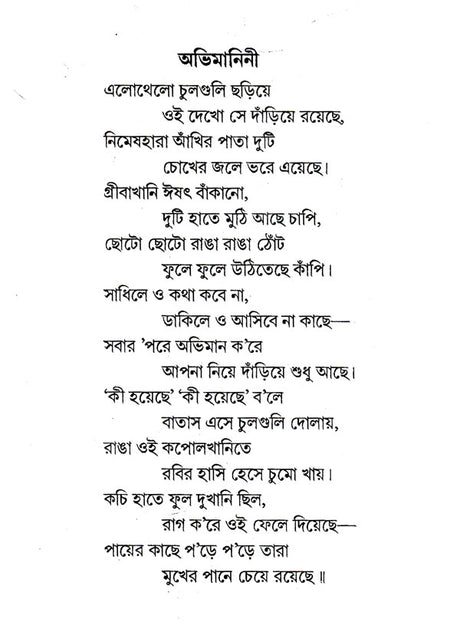 অভিমানিনী
এলোথেলো চুলগুলি ছড়িয়ে
ওই দেখো সে দাঁড়িয়ে রয়েছে,
নিমেষহারা আঁখির পাতা দুটি
চোখের জলে ভরে এয়েছে।
গ্রীবাখানি ঈষৎ বাঁকানো,
দুটি হাতে মুঠি আছে চাপি,
ছোটো ছোটো রাঙা রাঙা ঠোঁট
ফুলে ফুলে উঠিতেছে কাঁপি।
সাধিলে ও কথা কবে না,
ডাকিলে ও আসিবে না কাছে—
সবার ’পরে অভিমান ক’রে
আপনা নিয়ে দাঁড়িয়ে শুধু আছে।
‘কী হয়েছে’ ‘কী হয়েছে’ ব’লে
বাতাস এসে চুলগুলি দোলায়,
রাঙা ওই কপোলখানিতে
রবির হাসি হেসে চুমো খায়।
কচি হাতে ফুল দুখানি ছিল,
রাগ ক’রে ওই ফেলে দিয়েছে—
পায়ের কাছে প’ড়ে প’ড়ে তারা
মুখের পানে চেয়ে রয়েছে॥